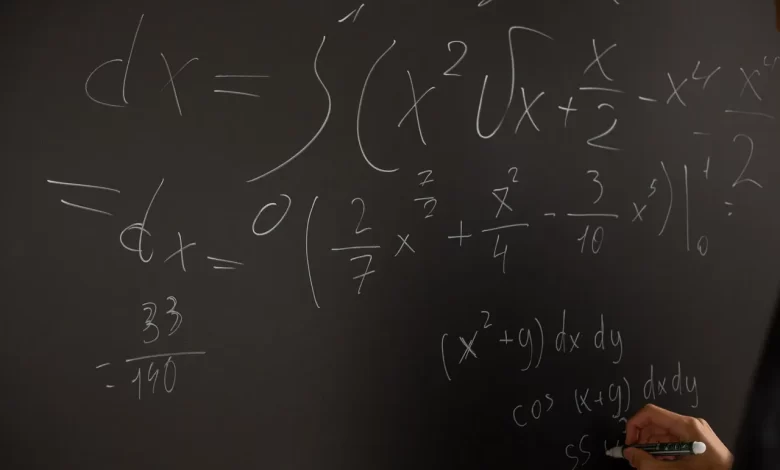 dx = ∫ 1 0 (x² √x + x/2 - x⁴ - x⁴/2
= dx = (2/7 x^7/2 + x²/4 - 3/10 x⁵) |¹₀ =
= 33/140
(x² + y) dx dy
cos (x+y) dxdy
SS